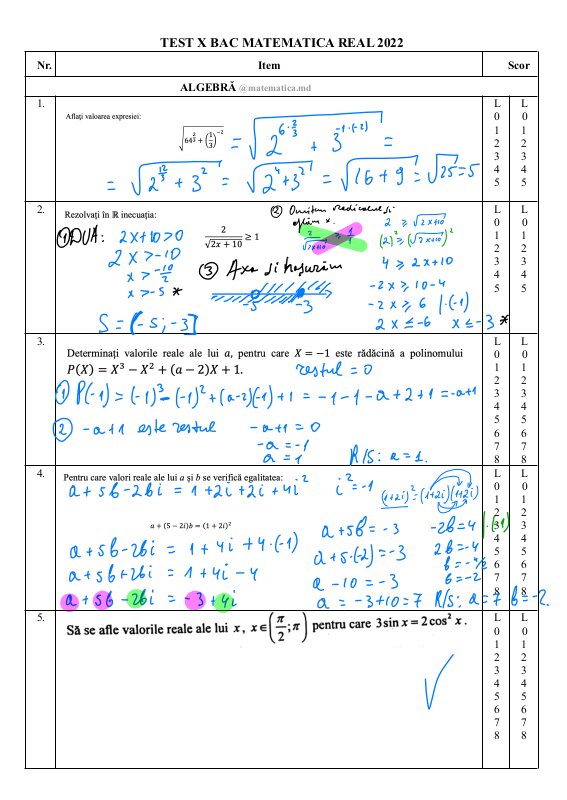 TEST X BAC MATEMATICA REAL 2022
Nr. Item Scor
ALGEBRĂ @matematica.md
1. Aflați valoarea expresiei:
√(64^(2/3) + (1/3)^(-2)) = √(2^(6·2/3) + 3^(-1·(-2))) =
= √(2^(12/3) + 3^2) = √(2^4 + 3^2) = √(16 + 9) = √25 = 5
L L
0 0
1 1
2 2
3 3
4 4
5 5
2. Rezolvați în ℝ inecuația:
2/√(2x + 10) ≥ 1
① DVA: 2x+10>0
2x>-10
x>-10/2
x>-5 *
② Omitem radicalul și
aflăm x.
2/√(2x+10) ≥ 1/1
2 ≥ √(2x+10)
(2)² ≥ (√(2x+10))²
4 ≥ 2x+10
-2x ≥ 10-4
-2x ≥ 6 |·(-1)
2x ≤ -6 x ≤ -3 *
③ Axa și hașurăm
-5 -3
S = (-5; -3]
L L
0 0
1 1
2 2
3 3
4 4
5 5
3. Determinați valorile reale ale lui a, pentru care X = −1 este rădăcină a polinomului
P(X) = X³ − X² + (a − 2)X + 1. restul = 0
① P(-1) = (-1)³ - (-1)² + (a-2)(-1) + 1 = -1 - 1 - a + 2 + 1 = -a+1
② -a+1 este restul -a+1 = 0
-a = -1
a = 1 R/S: a = 1.
L L
0 0
1 1
2 2
3 3
4 4
5 5
6 6
7 7
8 8
4. Pentru care valori reale ale lui a și b se verifică egalitatea:
a + 5b - 2bi = 1 + 2i + 2i + 4i² i² = -1 (1+2i)² = (1+2i)(1+2i)
a + (5 − 2i)b = (1 + 2i)²
a + 5b - 2bi = 1 + 4i + 4·(-1)
a + 5b + 2bi = 1 + 4i - 4
a + 5b - 2bi = -3 + 4i
a + 5b = -3
a + 5·(-2) = -3
a - 10 = -3
a = -3 + 10 = 7
-2b = 4 |·(-1)
2b = -4
b = -4/2
b = -2
R/S: a = 7 b = -2.
L L
0 0
1 1
2 2
3 3
4 4
5 5
6 6
7 7
8 8
5. Să se afle valorile reale ale lui x, x∈(π/2; π) pentru care 3 sin x = 2 cos² x.
L L
0 0
1 1
2 2
3 3
4 4
5 5
6 6
7 7
8 8